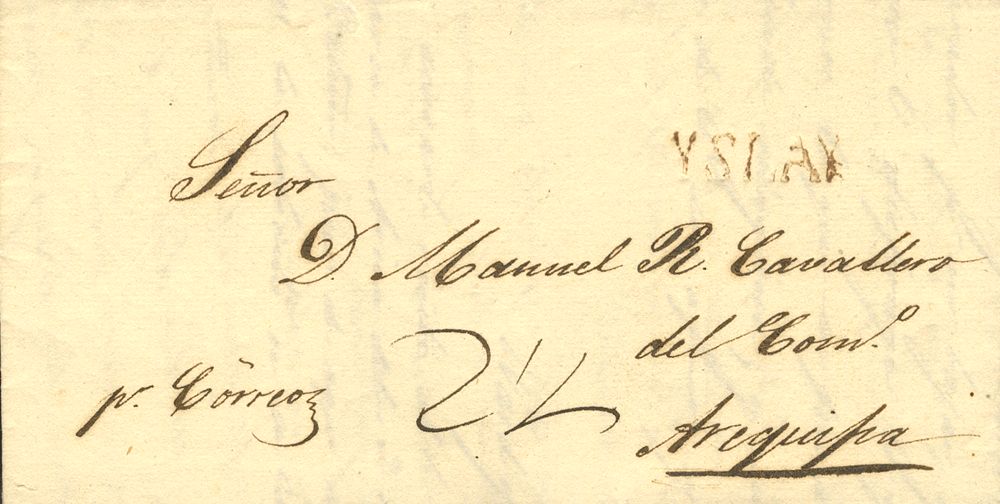 YSLAY
Señor
D. Manuel R. Cavallero
del Com.º
pr. Côrreo
Arequipa